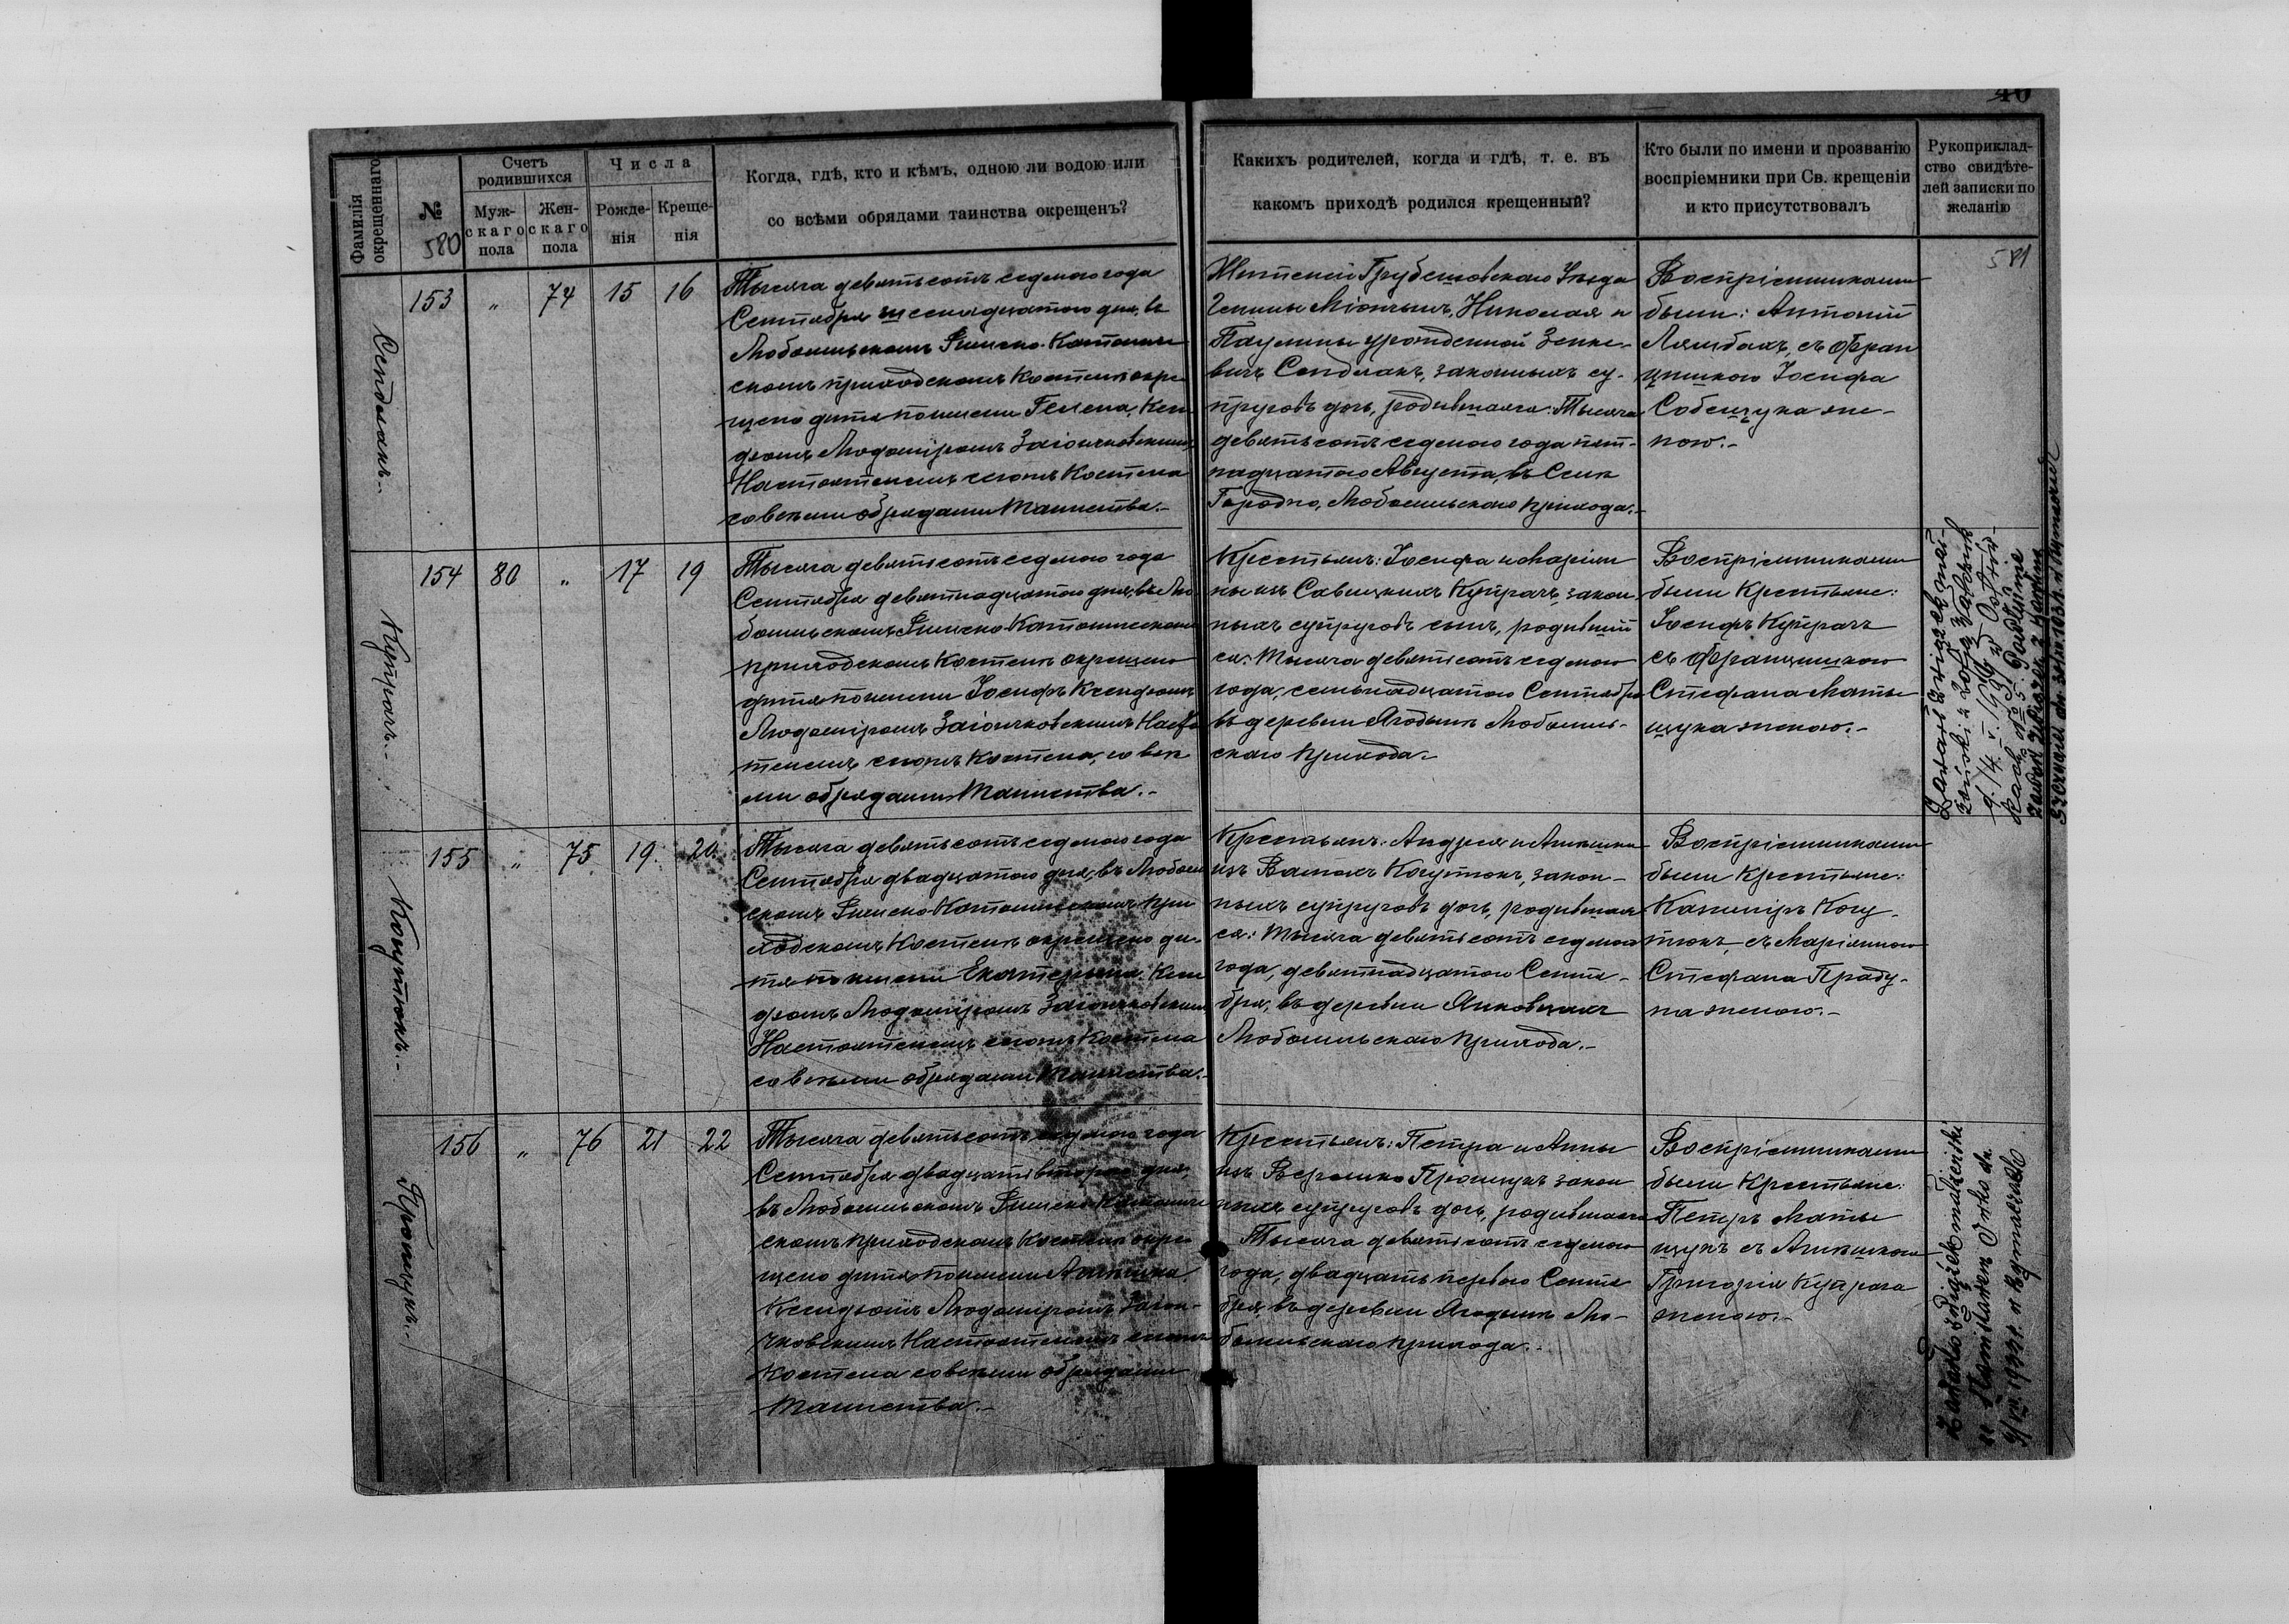 40
Фамилія окрещеннаго
№
580
Счетъ родившихся
Мужскаго пола
Женскаго пола
Числа
Рожденія
Крещенія
Когда, гдѣ, кто и кѣмъ, одною ли водою или
со всѣми обрядами таинства окрещенъ?
Какихъ родителей, когда и гдѣ, т. е. въ
какомъ приходѣ родился крещенный?
Кто были по имени и прозванію
воспріемники при Св. крещеніи
и кто присутствовалъ
Рукоприклад-
ство свидѣте-
лей записки по
желанію
581
153 " 74 15 16
Тысяча девятьсотъ седьмого года
Сентября шестнадцатого дня, въ
Любомльскомъ Римско-Католиче
скомъ приходскомъ Костелѣ окре
щено дитя по имени Гелена, Ксен
дзомъ Людомиромъ Заіончковскимъ,
Настоятелемъ сього Костела
со всѣми обрядами Таинства.-
Жителей Грубешовскаго Уѣзда
Гмины Міончынъ, Николая и
Паулины урожденной Зенке-
вичъ Сендлакъ, законныхъ су-
пруговъ дочь, родившаяся: Тысяча
девятьсотъ седьмого года пят-
надцатого Августа, въ Селѣ
Городно, Любомльскаго прихода.-
Воспріемниками
были: Антоній
Лямбахъ, съ Фран
цишкою Іосифа
Собещука же-
ною.-
154 80 " 17 19
Купрачъ.-
Тысяча девятьсотъ седьмого года
Сентября девятнадцатого дня, въ Лю
бомльскомъ Римско-Католическомъ
приходскомъ Костелѣ окрещено
дитя по имени Іосифъ Ксендзомъ
Людомиромъ Заіончковскимъ Насто
телемъ сього Костела, со всѣ
ми обрядами Таинства.-
Крестьянъ: Іосифа и Маріан
ны изъ Савицкихъ Купрачъ, закон
ныхъ супруговъ сынъ, родивший
ся: Тысяча девятьсотъ седьмого
года, семьнадцатого Сентября
въ деревни Ягодынѣ Любомль-
скаго прихода.-
Воспріемниками
были Крестьяне:
Іосифъ Купрачъ
съ Францишкою
Стефана Маты
щука женою.-
155 " 75 19. 20
Когутюкъ.-
Тысяча девятьсотъ седьмого года
Сентября двадцатого дня, въ Любомль
скомъ Римско-Католическомъ при
ходскомъ Костелѣ окрещено ди-
тя по имени Екатерына Ксен
дзомъ Людомиромъ Заіончковскимъ
Настоятелемъ сього Костела
со всѣми обрядами Таинства.-
Крестьянъ: Андрея и Агнѣшки
ныхъ супруговъ дочь, родившая
ся: Тысяча девятьсотъ седьмого
года, девятнадцатого Сентя-
бря, въ деревни Янковцахъ
Любомльскаго прихода.-
Воспріемниками
были Крестьяне:
Казимиръ Когу-
тюкъ, съ Маріанною
Стефана Праду-
на женою.-
156 " 76 21 22
Тысяча девятьсотъ седьмого года
Сентября двадцать второго дня,
въ Любомльскомъ Римско-Католиче
скомъ приходскомъ Костелѣ окре
щено дитя по имени Агнѣшка,
Ксендзомъ Людомиромъ Заіон-
чковскимъ Настоятелемъ сього
Костела со всѣми обрядами
Таинства.-
Крестьянъ: Петра и Анны
ныхъ супруговъ дочь, родившаяся
Тысяча девятьсотъ седьмого
года, двадцать первого Сентя
бря, въ деревни Ягодынѣ Лю-
бомльскаго прихода.-
Воспріемниками
были Крестьяне:
Петръ Маты
щукъ съ Агнѣшкою
Григорія Купрача
женою.-